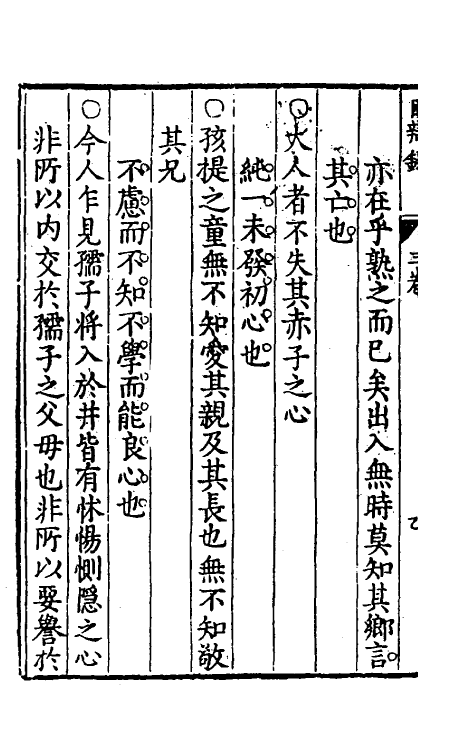 三卷
亦在乎熟之而已矣出入無時莫知其鄉言
其亡也
〇大人者不失其赤子之心
純一未發初心也
〇孩提之童無不知愛其親及其長也無不知敬
其兄
不慮而不知不學而能良心也
〇今人乍見孺子將入於井皆有怵惕惻隱之心
非所以内交於孺子之父母也非所以要譽於